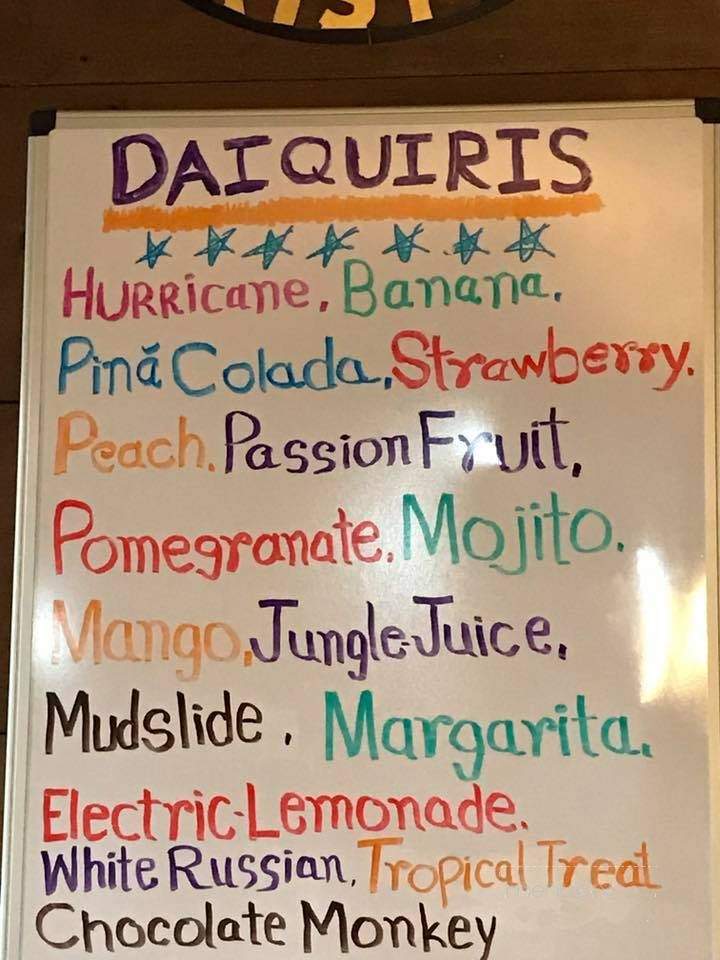 DAIQUIRIS
HURRicane, Banana,
Pină Colada, Strawberry.
Peach, Passion Fruit,
Pomegranate, Mojito.
Mango, Jungle-Juice,
Mudslide, Margarita.
Electric-Lemonade.
White Russian, Tropical Treat
Chocolate Monkey